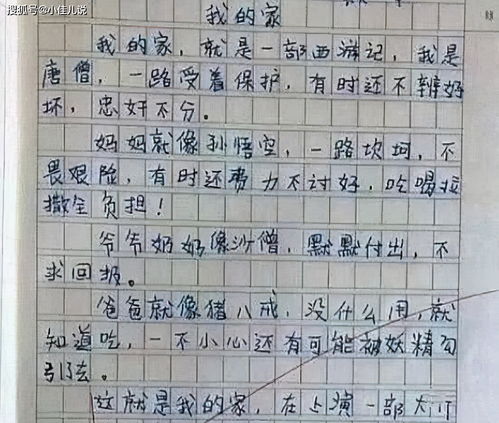 搜狐号@小佳儿说
我的家
我的家，就是一部西游记，我是
唐僧，一路受着保护，有时还不辨好
坏，忠奸不分。
妈妈就像孙悟空，一路坎坷，不
畏艰险，有时还费力不讨好，吃喝拉
撒全负担！
爷爷奶奶像沙僧，默默付出，不
求回报。
爸爸就像猪八戒，没什么用，就
知道吃，一不小心还有可能被妖精勾
引去。
这就是我的家，在上演一部大